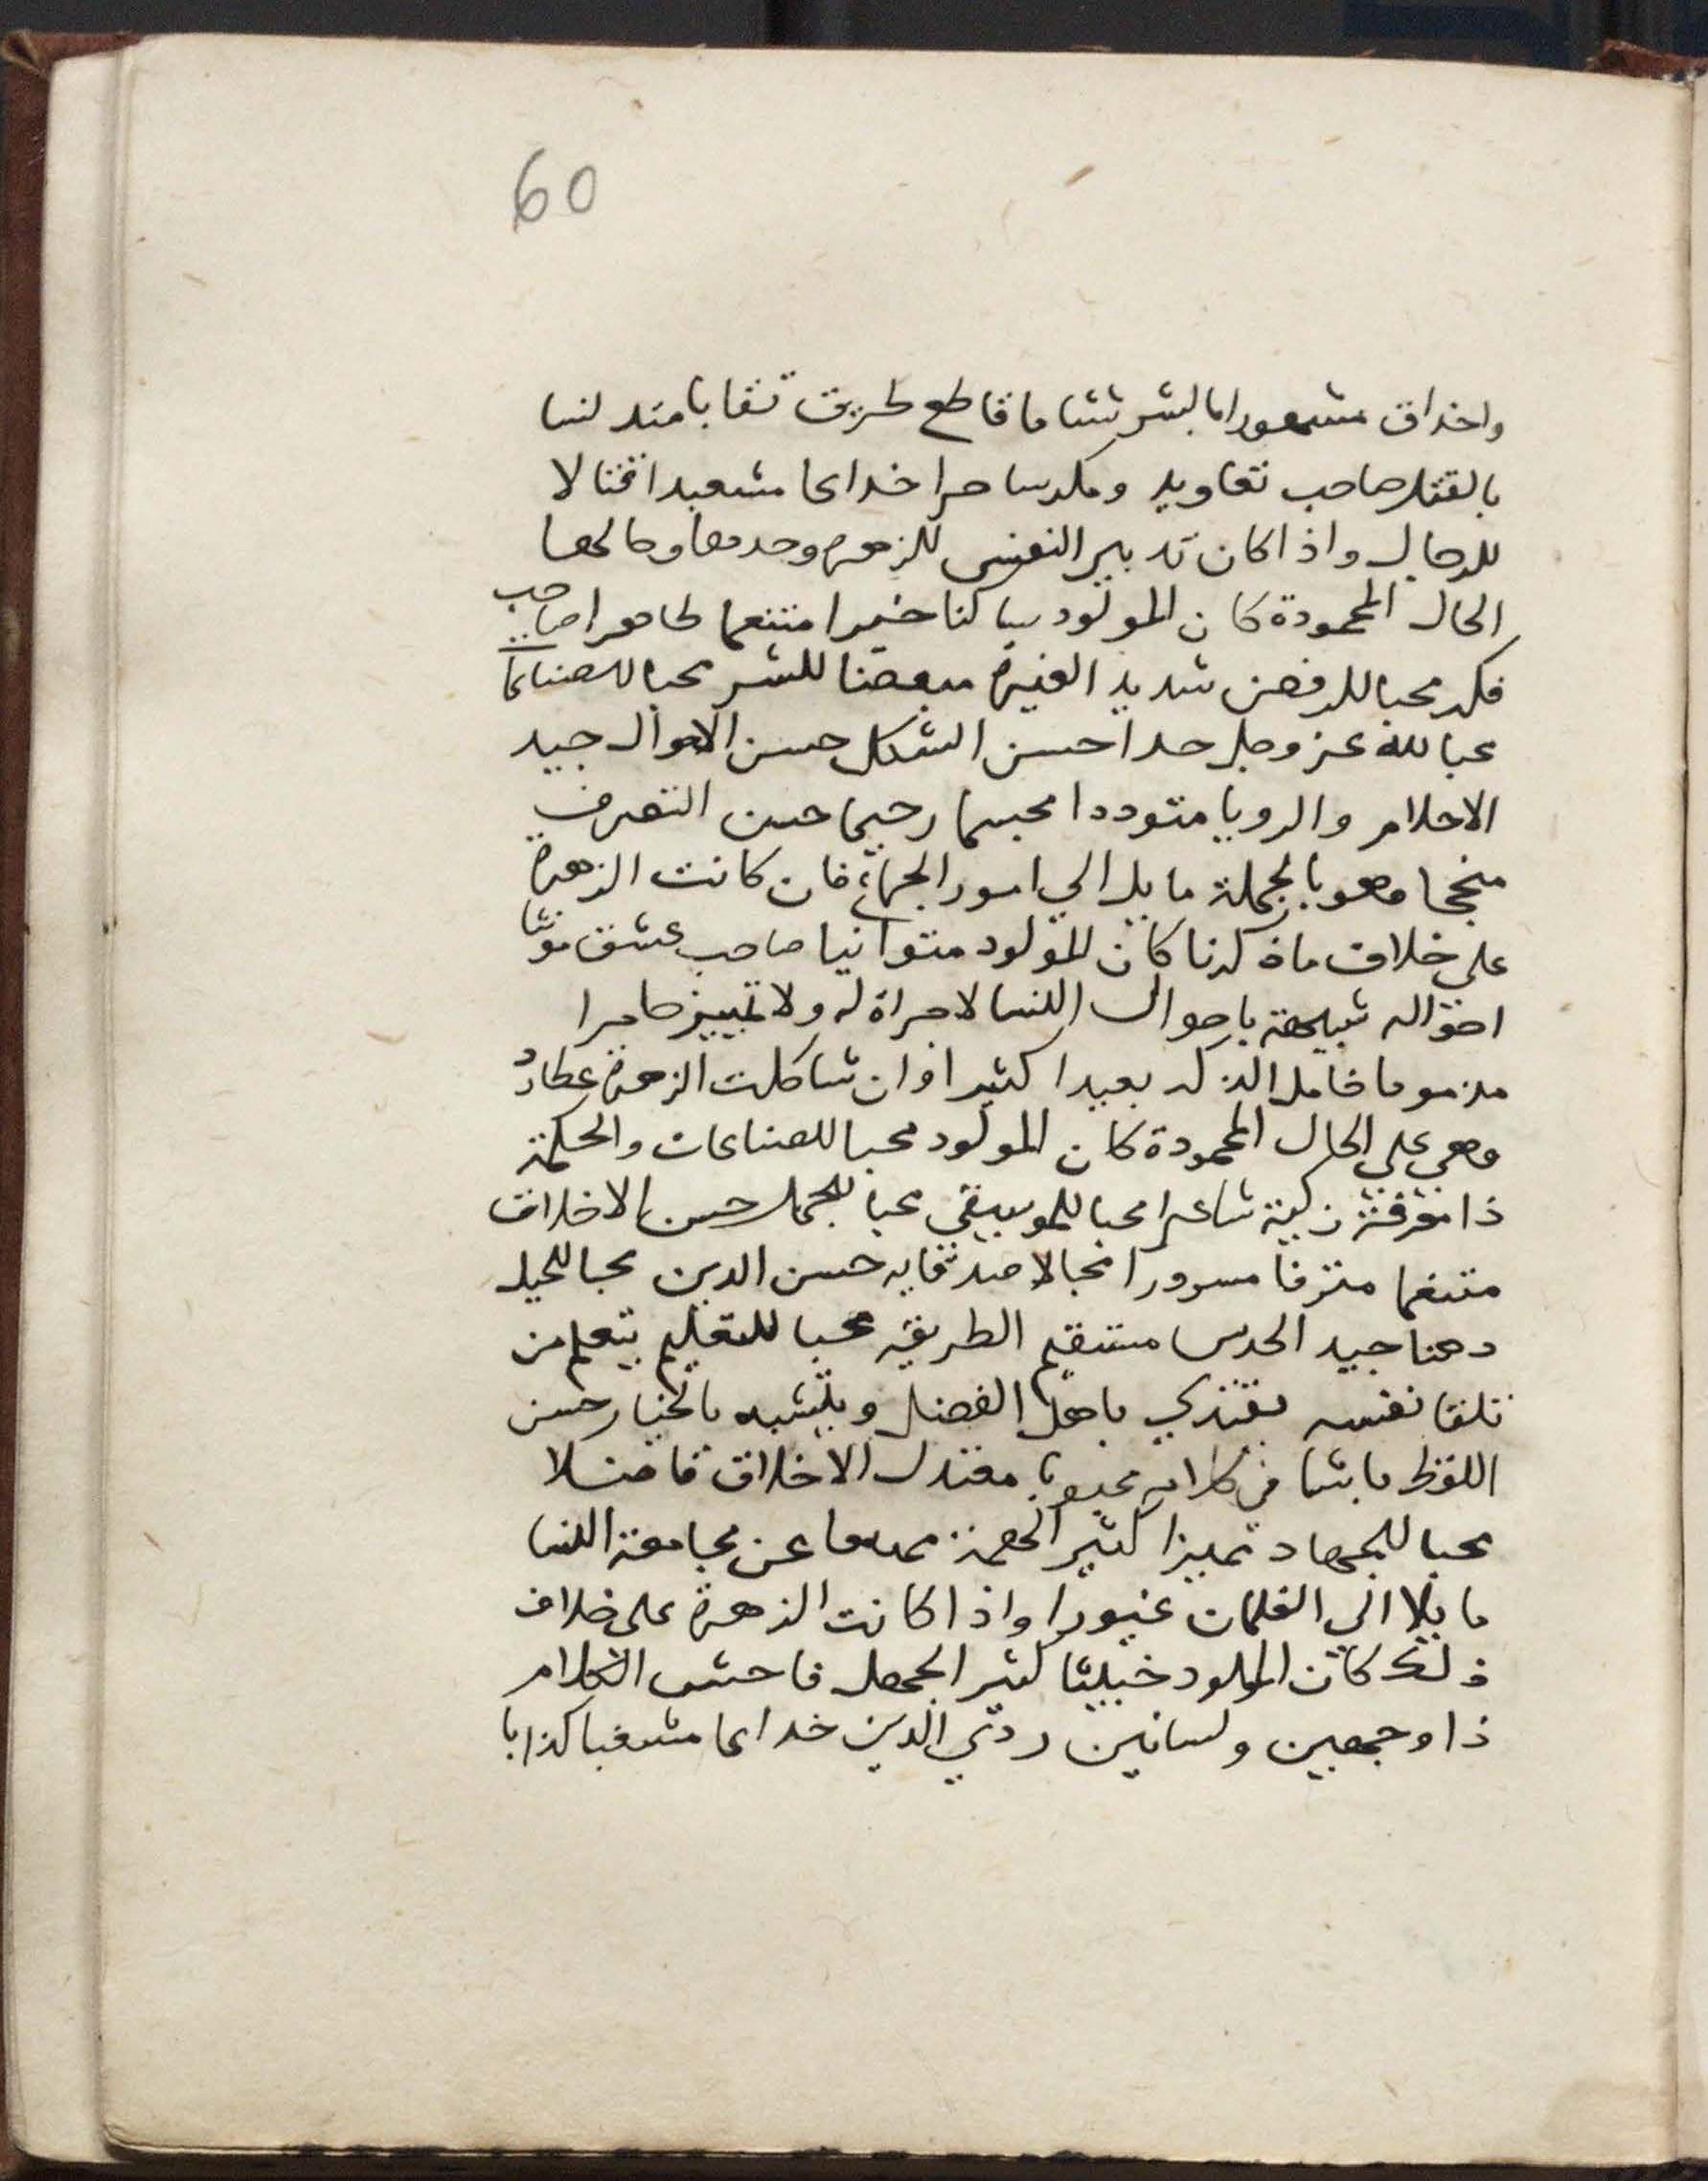 60
واخداق مشهورا بالشر شتاما قاطع طريق نقابا متدلسا
بالقتل صاحب تعاويد ومكر ساحرا خداعا مشعبدا قتالا
للرجال واذا كان تدبير النفس للزهرة وحدها وحالها
الحال المحمودة كان المولود ساكنا خيرا متنعما طاهرا صاحب
فكر محبا للرقص شديد الغيرة مبغضا للشر محبا للصناعات
محبا لله عز وجل جدا حسن الشكل حسن الاحوال جيد
الاحلام والرويا متوددا محسما رحيما حسن التصرف
منجحا وهو بالجملة مايل الي امور الجماع فان كانت الزهرة
على خلاف ما ذكرنا كان المولود متوانيا صاحب عشق مؤنثا
احواله شبيهة باحوال النسا لا جراة له ولا تمييز
مذموما خامل الذكر بعيدا كثيرا وان شاكلت الزهرة عطارد
وهي على الحال المحمودة كان المولود محبا للصناعات والحكمة
ذا معرفة زكية شاعرا محبا للموسيقي محبا للجمال حسن الاخلاق
متنعما مترفا مسرورا محبا لاصدقايه حسن الدين محبا للحيل
دهنا جيد الحدس مستقيم الطريقة محبا للتعليم يتعلم من
تلقا نفسه يقتدي باهل الفضل ويتشبه بالخيار حسن
اللفظ باشا في كلامه محبوبا معتدل الاخلاق فاضلا
محبا للجهاد تميزا كثير الهمة عن مجامعة النسا
مايلا الي الغلمان غيورا واذا كانت الزهرة على خلاف
ذلك كان المولود خبيثا كثير الجهل فاحش الكلام
ذا وجهين ولسانين ردي الدين خداعا مشغبا كذابا